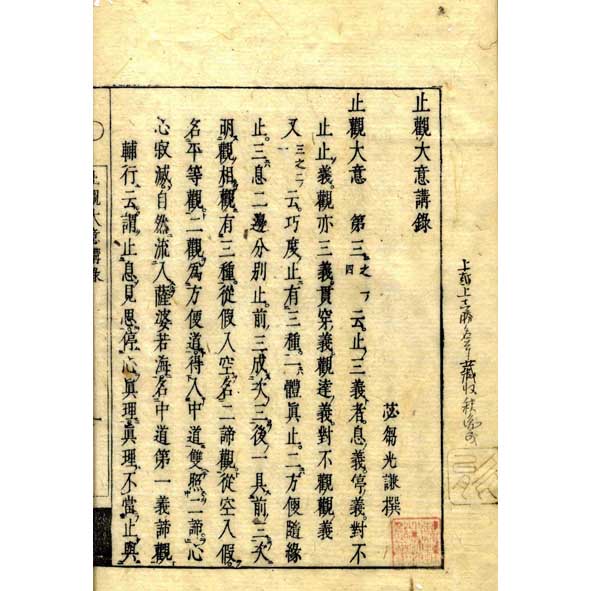 止觀大意講錄
苾芻光謙撰
止觀大意 第三之四丁云止三義者息義停義對不
止止義觀亦三義貫穿義觀達義對不觀觀義
又三之二丁云巧度止有三種一體眞止二方便隨緣
止三息二邊分別止前三成次三後一具前三次
明觀相觀有三種從假入空名二諦觀從空入假
名平等觀二觀爲方便道得入中道雙照二諦心
心寂滅自然流入薩婆若海名中道第一義諦觀
輔行云謂止息見思停心眞理眞理不當止與
止觀大意講錄